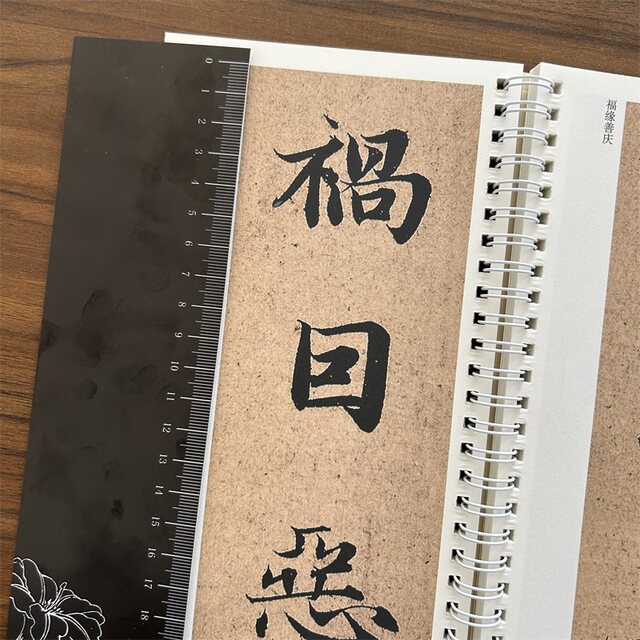 0 1 2 3 4 5 6 7 8 9 10 11 12 13 14 15 16 17 18
禍囙惡
福缘善庆